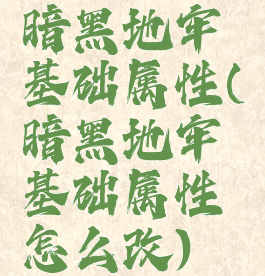 暗黑地牢
基础属性(
暗黑地牢
基础属性
怎么改)